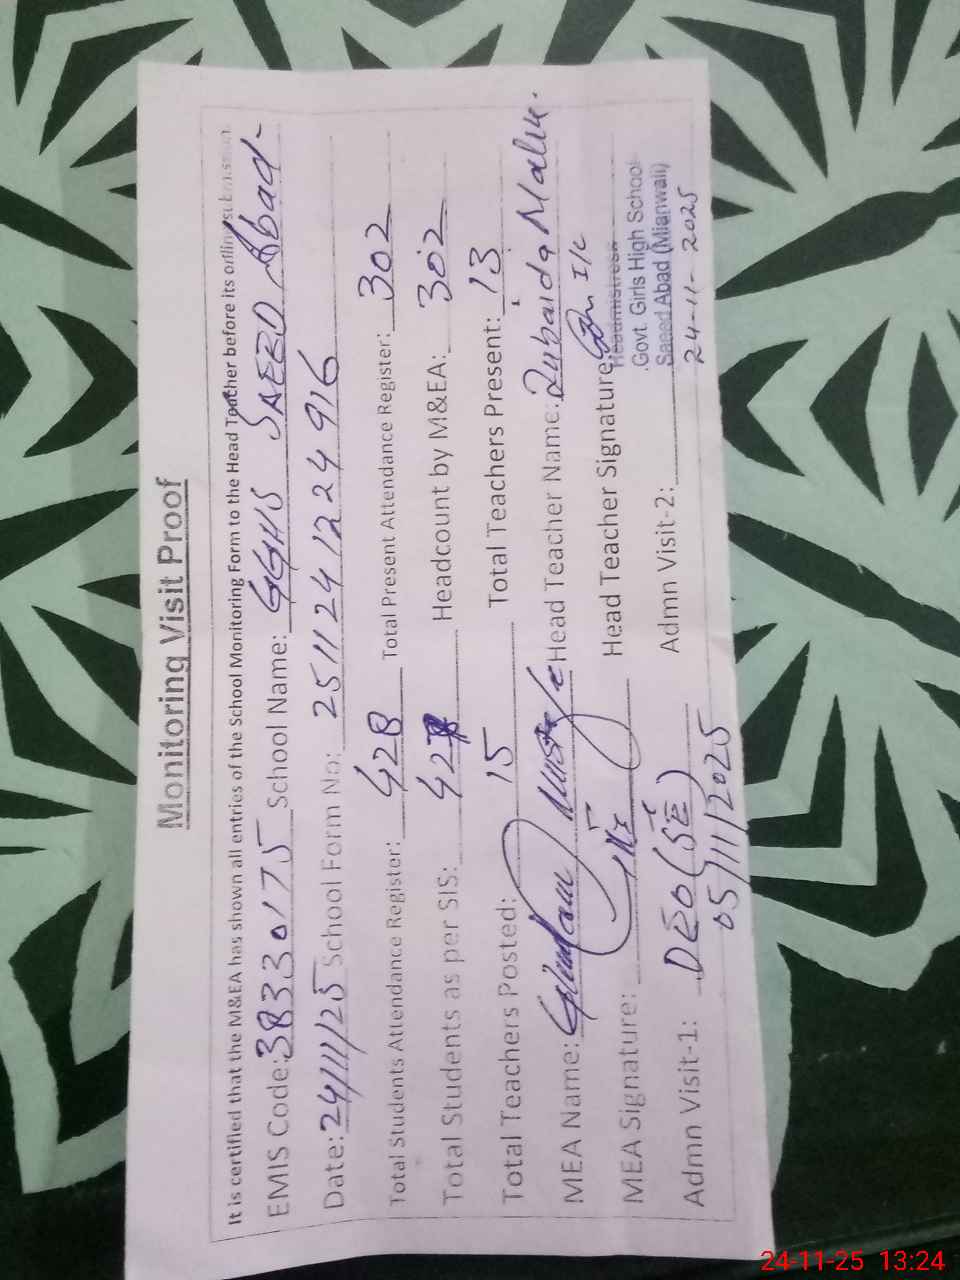 Monitoring Visit Proof
It is certified that the M&EA has shown all entries of the School Monitoring Form to the Head Teacher before its offline submission.
EMIS Code: 38330175 School Name: GGHS SAEED Abad
Date: 24/11/25 School Form No: 2511241224916
Total Students Attendance Register: 428 Total Present Attendance Register: 302
Total Students as per SIS: 428 Headcount by M&EA: 302
Total Teachers Posted: 15 Total Teachers Present: 13
MEA Name: Ghulam Mustafa Head Teacher Name: Zubaida Malik.
MEA Signature: Head Teacher Signature: I/C
Headmistress
Govt. Girls High School
Saeed Abad (Mianwali)
24-11-2025
Admn Visit-1: DEO (SE) Admn Visit-2:
05/11/2025
24-11-25 13:24